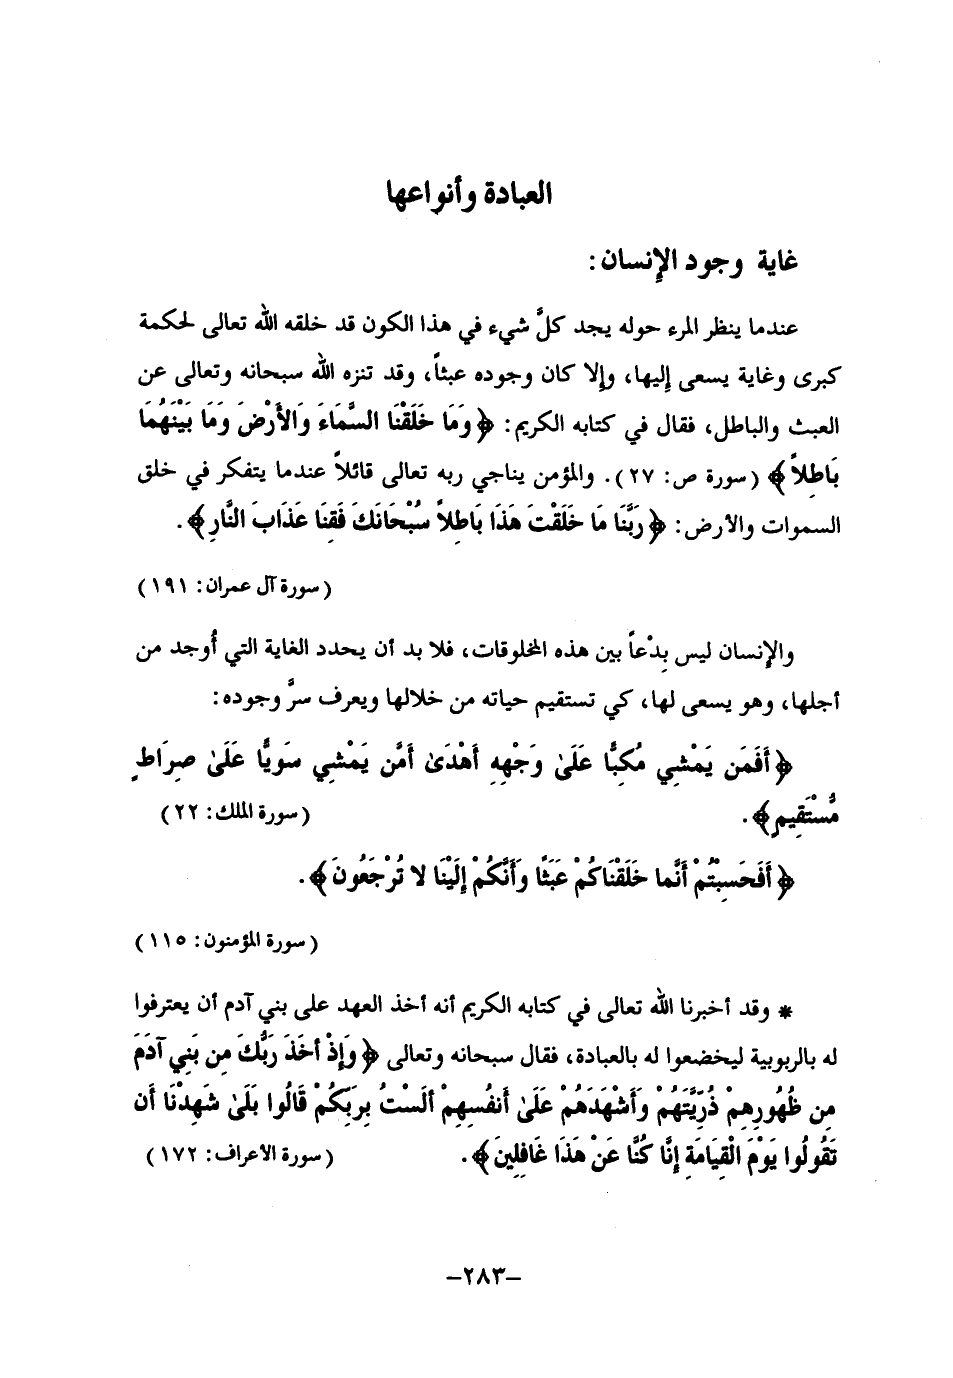 العبادة وأنواعها
غاية وجود الإنسان:
عندما ينظر المرء حوله يجد كلَّ شيء في هذا الكون قد خلقه الله تعالى لحكمة
كبرى وغاية يسعى إليها، وإلا كان وجوده عبثاً، وقد تنزه الله سبحانه وتعالى عن
العبث والباطل، فقال في كتابه الكريم: ﴿وَمَا خَلَقْنَا السَّمَاءَ وَالأَرْضَ وَمَا بَيْنَهُمَا
بَاطلاً﴾ (سورة ص: ٢٧). والمؤمن يناجي ربه تعالى قائلاً عندما يتفكر في خلق
السموات والأرض: ﴿رَبَّنَا مَا خَلَقْتَ هَذَا بَاطِلاً سُبْحَانَكَ فَقِنَا عَذَابَ النَّارِ﴾.
(سورة آل عمران: ١٩١)
والإنسان ليس بِدْعاً بين هذه المخلوقات، فلا بد أن يحدد الغاية التي أُوجد من
أجلها، وهو يسعى لها، كي تستقيم حياته من خلالها ويعرف سرَّ وجوده:
﴿أَفَمَن يَمْشِي مُكِبًّا عَلَىٰ وَجْهِهِ أَهْدَىٰ أَمَّن يَمْشِي سَوِيًّا عَلَىٰ صِرَاطٍ
مُّسْتَقِيمٍ﴾. (سورة الملك: ٢٢)
﴿أَفَحَسِبْتُمْ أَنَّما خَلَقْنَاكُمْ عَبَثًا وَأَنَّكُمْ إِلَيْنَا لا تُرْجَعُونَ﴾.
(سورة المؤمنون: ١١٥)
* وقد أخبرنا الله تعالى في كتابه الكريم أنه أخذ العهد على بني آدم أن يعترفوا
له بالربوبية ليخضعوا له بالعبادة، فقال سبحانه وتعالى ﴿وَإِذْ أخَذَ رَبُّكَ مِن بَنِي آدَمَ
مِن ظُهُورِهِمْ ذُرِّيَّتَهُمْ وَأَشْهَدَهُمْ عَلَىٰ أَنفُسِهِمْ ألَسْتُ بِرَبِّكُمْ قَالُوا بَلَىٰ شَهِدْنَا أَن
تَقُولُوا يَوْمَ الْقِيَامَةِ إِنَّا كُنَّا عَنْ هَذَا غَافِلِينَ﴾. (سورة الأعراف: ١٧٢)
-٢٨٣-